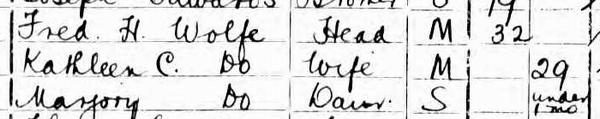 Joseph Edwards Brother S 19
Fred. H. Wolfe Head M 32
Kathleen C. Do Wife M 29
Marjory Do Daur. S under 1 mo